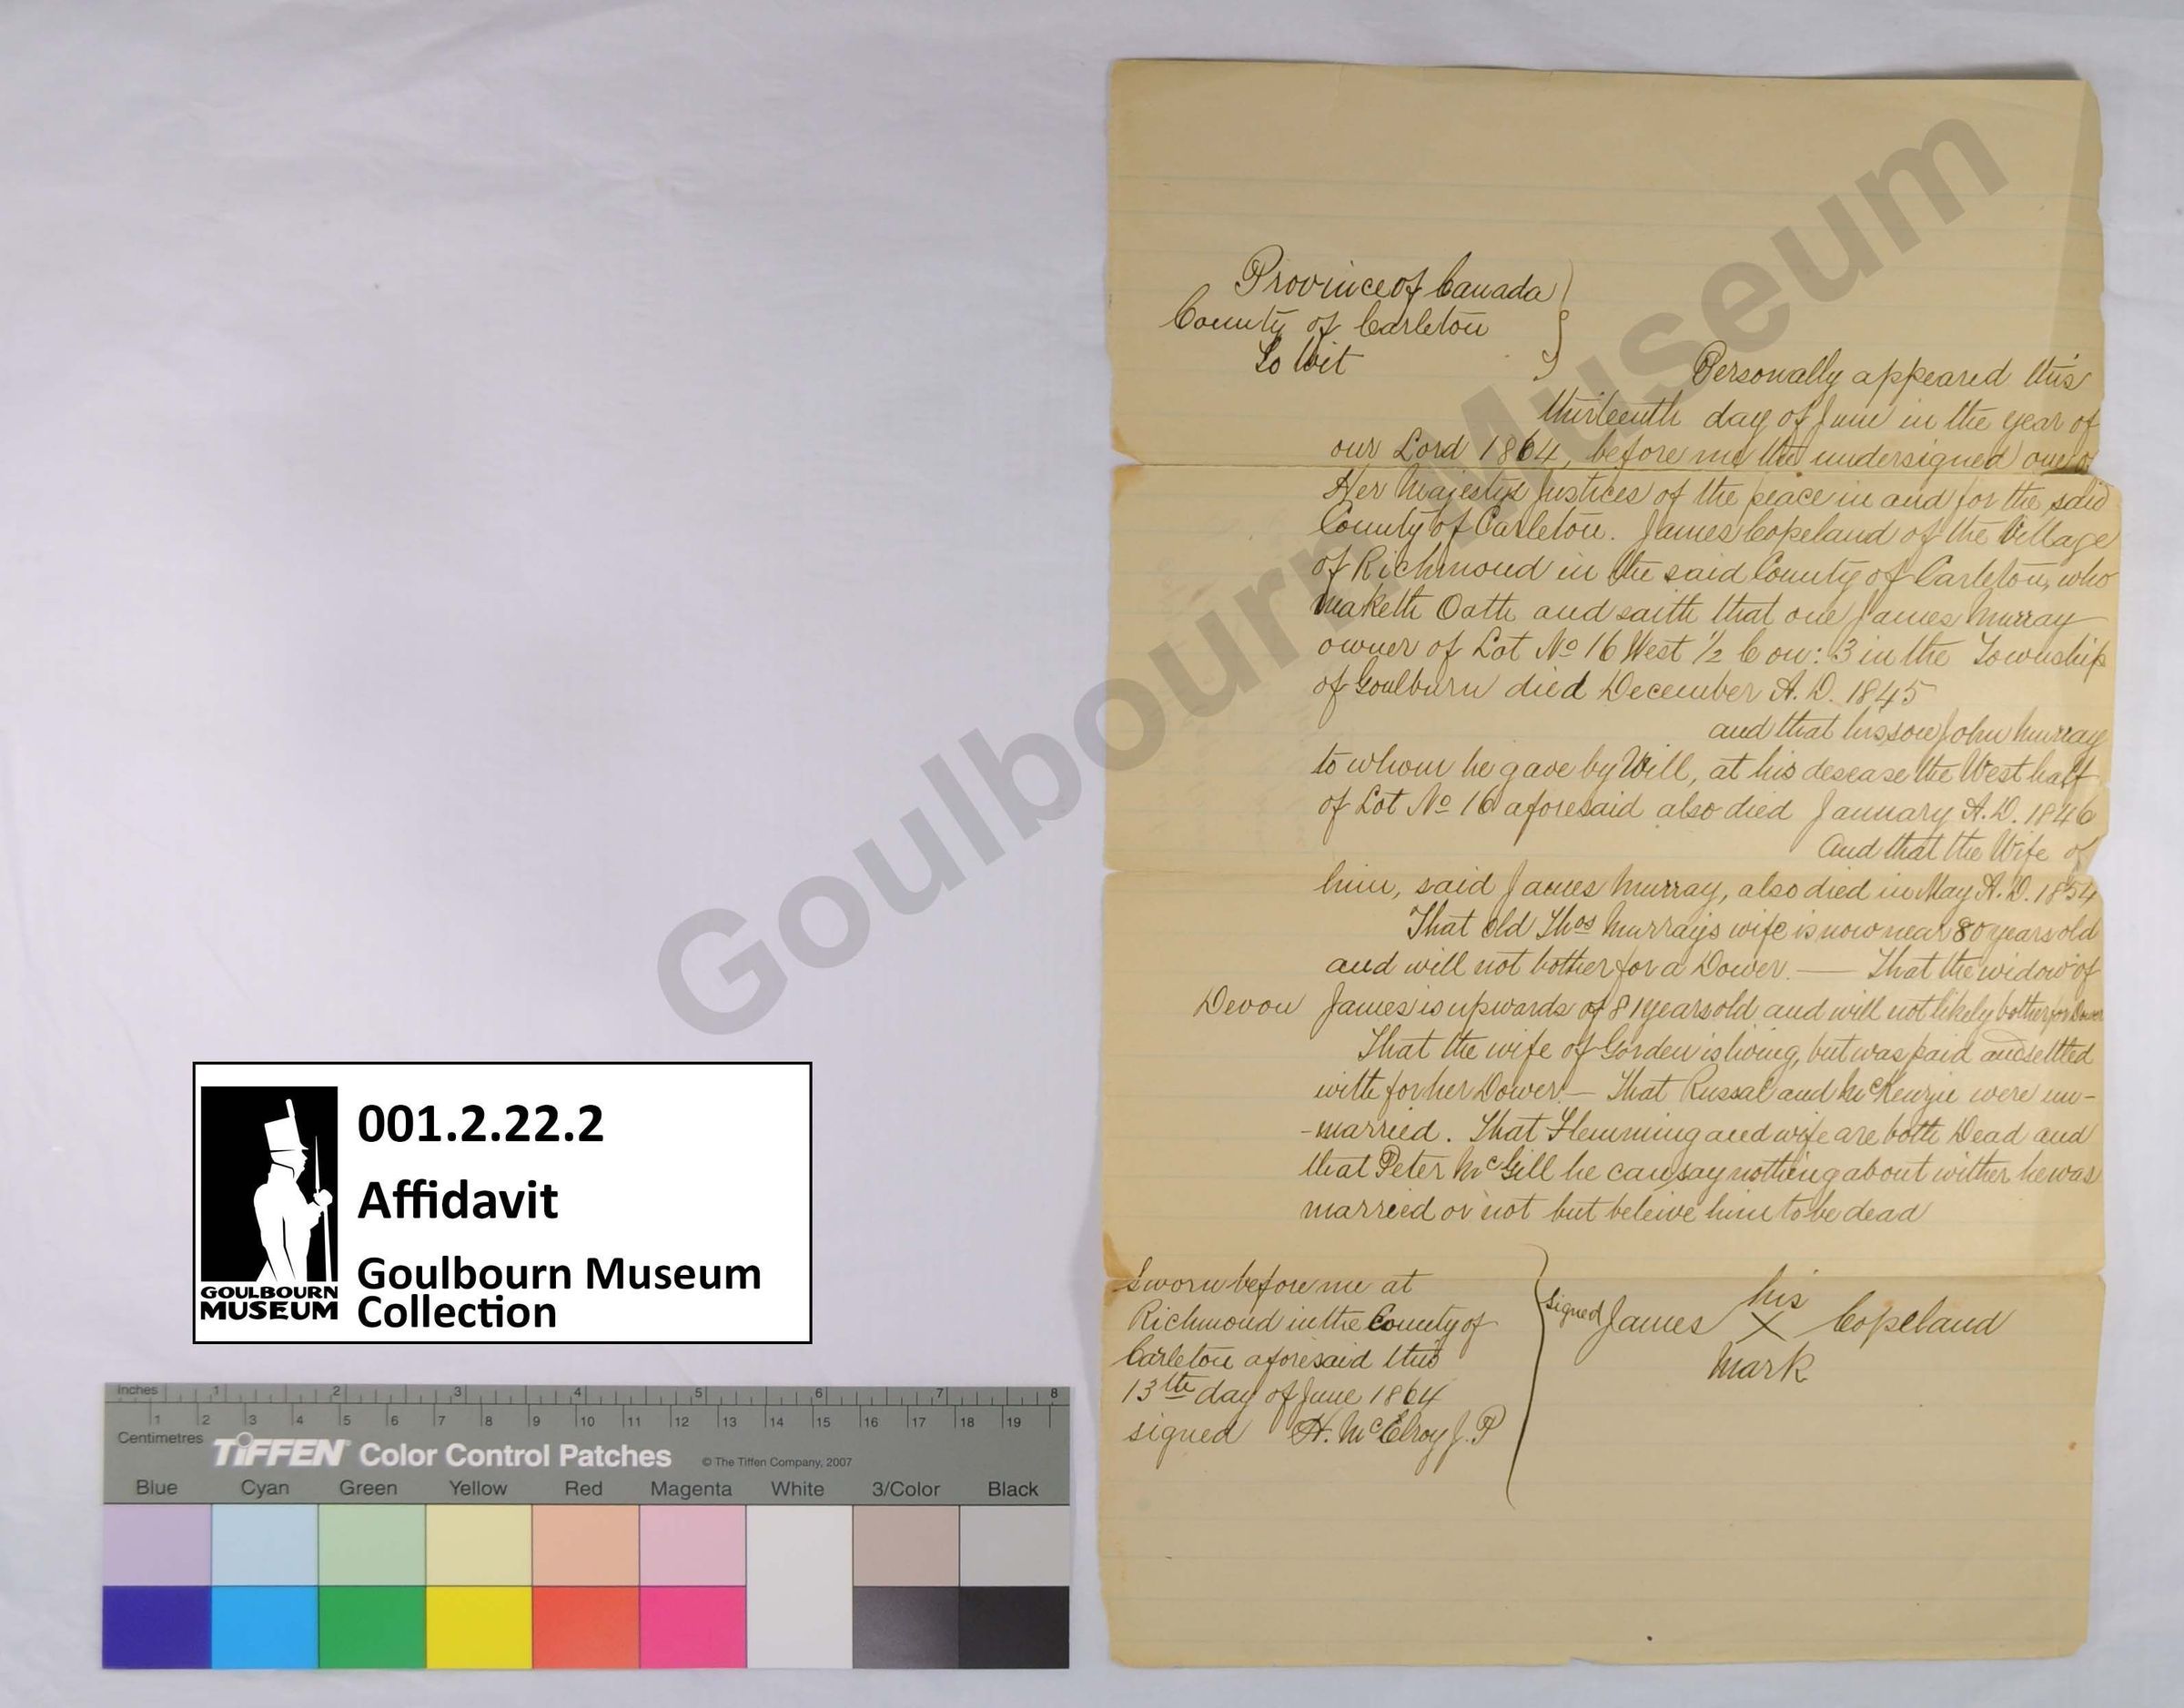 Province of Canada
County of Carleton
To Wit
Personally appeared this
thirteenth day of June in the year of
our Lord 1864, before me the undersigned one of
Her Majestys Justices of the peace in and for the said
County of Carleton. James Copeland of the Village
of Richmond in the said County of Carleton, who
maketh Oath and saith that one James Murray
owner of Lot No 16 West 1/2 Con: 3 in the Township
of Goulburn died December A.D. 1845
and that his son John Murray
to whom he gave by Will, at his desease the West half
of Lot No 16 aforesaid also died January A.D. 1846
And that the Wife of
him, said James Murray, also died in May A.D. 1854
That Old Thos Murrays wife is now near 80 years old
and will not bother for a Dower. — That the widow of
Devon James is upwards of 81 years old and will not likely bother for Dower
That the wife of Gorden is living, but was paid and settled
with for her Dower. — That Russal and McKenzie were un-
-married. That Flemming and wife are both Dead and
that Peter McGill he can say nothing about wither he was
married or not but beleive him to be dead
Sworn before me at
Richmond in the County of
Carleton aforesaid this
13th day of June 1864
signed H. McElroy J.P
signed James his X Copeland
mark
Goulbourn Museum
001.2.22.2
Affidavit
Goulbourn Museum
Collection
GOULBOURN
MUSEUM
Inches 1 2 3 4 5 6 7 8
1 2 3 4 5 6 7 8 9 10 11 12 13 14 15 16 17 18 19
Centimetres
TIFFEN Color Control Patches © The Tiffen Company, 2007
Blue Cyan Green Yellow Red Magenta White 3/Color Black